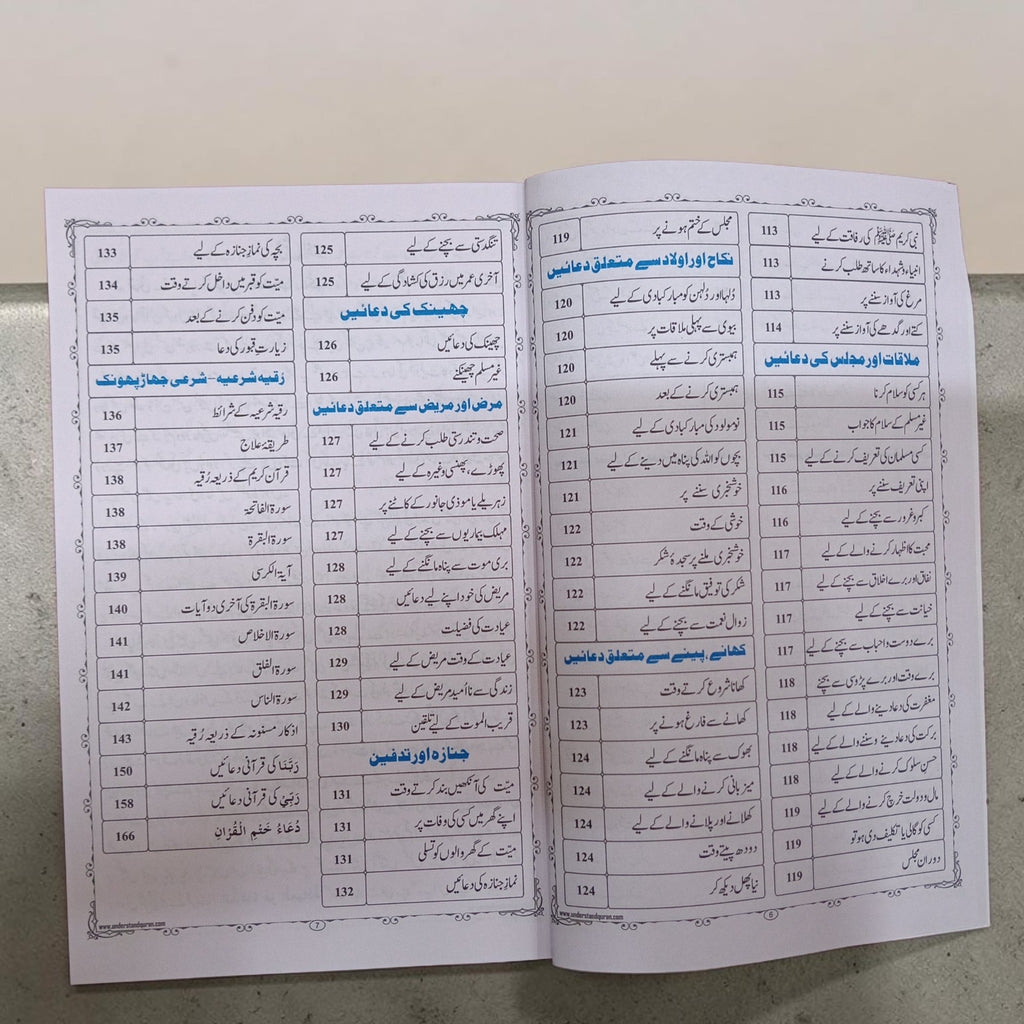 نبی کریم ﷺ کی رفاقت کے لیے 113
انبیاء و شہداء کا ساتھ طلب کرنے 113
مرغ کی آواز سننے پر 113
کتے اور گدھے کی آواز سننے پر 114
ملاقات اور مجلس کی دعائیں
ہر کسی کو سلام کرنا 115
غیر مسلم کے سلام کا جواب 115
کسی مسلمان کی تعریف کرنے کے لیے 115
اپنی تعریف سننے پر 116
کبر و غرور سے بچنے کے لیے 116
محبت کا اظہار کرنے والے کے لیے 117
نفاق اور برے اخلاق سے بچنے کے لیے 117
خیانت سے بچنے کے لیے 117
برے دوست و احباب سے بچنے کے لیے 117
برے وقت اور برے پڑوسی سے بچنے 118
مغفرت کی دعا دینے والے کے لیے 118
برکت کی دعا دینے و سننے والے کے لیے 118
حسن سلوک کرنے والے کے لیے 118
مال و دولت خرچ کرنے والے کے لیے 119
کسی کو گالی یا تکلیف دی ہو تو 119
دوران مجلس 119
مجلس کے ختم ہونے پر 119
نکاح اور اولاد سے متعلق دعائیں
دُلہا اور دُلہن کو مبارکبادی کے لیے 120
بیوی سے پہلی ملاقات پر 120
ہمبستری کرنے سے پہلے 120
ہمبستری کرنے کے بعد 120
نومولود کی مبارکبادی کے لیے 121
بچوں کو اللہ کی پناہ میں دینے کے لیے 121
خوشخبری سننے پر 121
خوشی کے وقت 122
خوشخبری ملنے پر سجدہ شکر 122
شکر کی توفیق مانگنے کے لیے 122
زوال نعمت سے بچنے کے لیے 122
کھانے، پینے سے متعلق دعائیں
کھانا شروع کرتے وقت 123
کھانے سے فارغ ہونے پر 123
بھوک سے پناہ مانگنے کے لیے 124
میزبانی کرنے والے کے لیے 124
کھلانے اور پلانے والے کے لیے 124
دودھ پیتے وقت 124
نیا پھل دیکھ کر 124
www.understandquran.com
6
تنگدستی سے بچنے کے لیے 125
آخری عمر میں رزق کی کشادگی کے لیے 125
چھینک کی دعائیں
چھینک کی دعائیں 126
غیر مسلم چھینکنے 126
مرض اور مریض سے متعلق دعائیں
صحت و تندرستی طلب کرنے کے لیے 127
پھوڑے، پھنسی وغیرہ کے لیے 127
زہریلے یا موذی جانور کے کاٹنے پر 127
مہلک بیماریوں سے بچنے کے لیے 127
بری موت سے پناہ مانگنے کے لیے 128
مریض کی خود اپنے لیے دعائیں 128
عیادت کی فضیلت 128
عیادت کے وقت مریض کے لیے 129
زندگی سے نا اُمید مریض کے لیے 129
قریب الموت کے لیے تلقین 130
جنازہ اور تدفین
میّت کی آنکھیں بند کرتے وقت 131
اپنے گھر میں کسی کی وفات پر 131
میّت کے گھر والوں کو تسلی 131
نماز جنازہ کی دعائیں 132
بچہ کی نماز جنازہ کے لیے 133
میّت کو قبر میں داخل کرتے وقت 134
میّت کو دفن کرنے کے بعد 135
زیارتِ قبور کی دعا 135
رُقیہ شرعیہ - شرعی جھاڑ پھونک
رقیہ شرعیہ کے شرائط 136
طریقۂ علاج 137
قرآن کریم کے ذریعہ رُقیہ 138
سورۃ الفاتحۃ 138
سورۃ البقرۃ 138
آیۃ الکرسی 139
سورۃ البقرۃ کی آخری دو آیات 140
سورۃ الاخلاص 141
سورۃ الفلق 141
سورۃ الناس 142
اذکار مسنونہ کے ذریعہ رُقیہ 143
رَبَّنَا کی قرآنی دعائیں 150
رَبِّ کی قرآنی دعائیں 158
دُعَاءُ خَتْمِ الْقُرْاٰنِ 166
www.understandquran.com
7